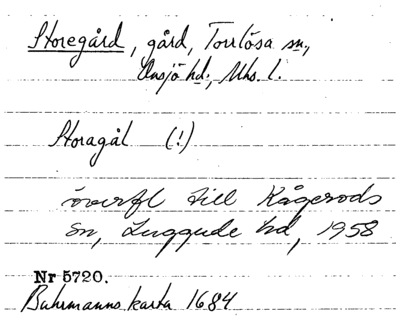 Storegård, gård, Torrlösa sn,
Onsjö hd, Mhs. l.
Storagål (!)
överfl till Kågeröds
sn, Luggude hd, 1958
Nr 5720.
Buhrmanns karta 1684